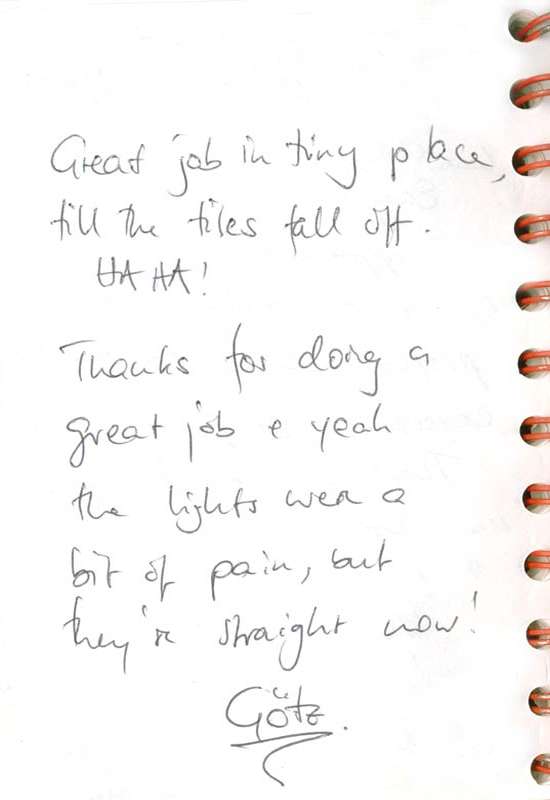 Great job in tiny place,
till the tiles fall off.
HAHA!
Thanks for doing a
great job & yeah
the lights were a
bit of pain, but
they're straight now!
Götz.